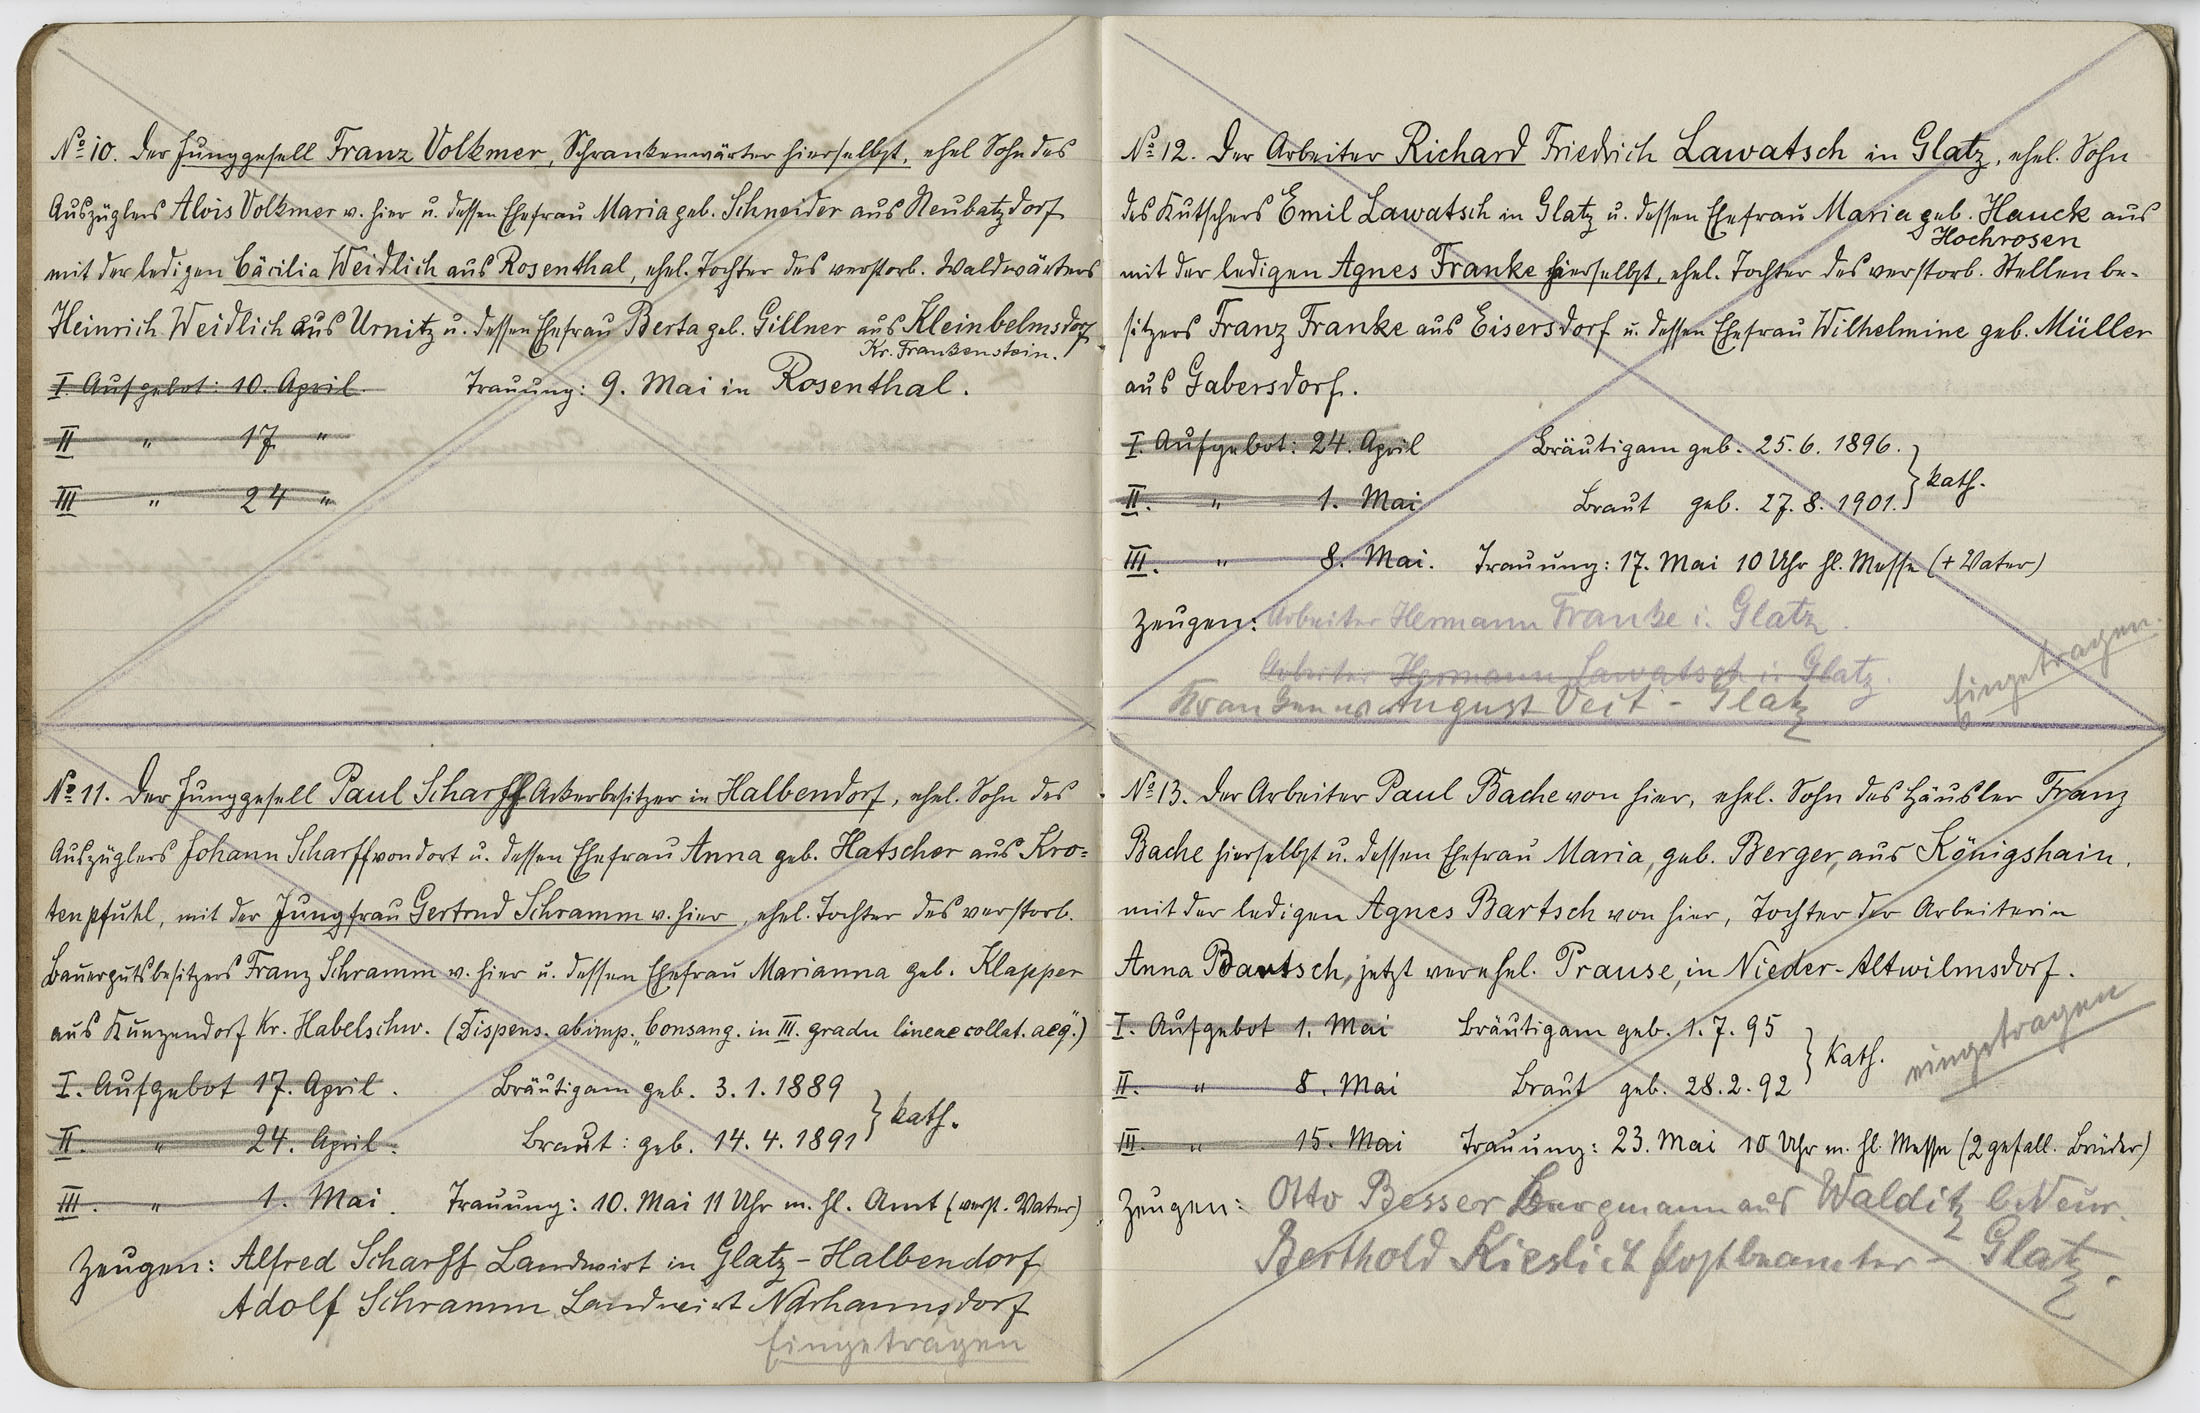 No 10. Der Junggesell Franz Volkmer, Schrankenwärter hierselbst, ehel Sohn des
Auszüglers Alois Volkmer v. hier u. dessen Ehefrau Maria geb. Schneider aus Neubatzdorf
mit der ledigen Cäcilia Weidlich aus Rosenthal, ehel. Tochter des verstorb. Waldwärters
Heinrich Weidlich aus Urnitz u. dessen Ehefrau Berta geb. Gillner aus Kleinbelmsdorf
Kr. Frankenstein.
I. Aufgebot: 10. April. Trauung: 9. Mai in Rosenthal.
II " 17 "
III " 24 "
No 11. Der Junggesell Paul Scharff Ackerbesitzer in Halbendorf, ehel. Sohn des
Auszüglers Johann Scharff von dort u. dessen Ehefrau Anna geb. Hatscher aus Kro=
tenpfuhl, mit der Jungfrau Gertrud Schramm v. hier, ehel. Tochter des verstorb.
Bauergutsbesitzers Franz Schramm v. hier u. dessen Ehefrau Marianna geb. Klapper
aus Kunzendorf Kr. Habelschw. (Dispens. ab imp. „Consang. in III. gradu lineae collat. aeq.")
I. Aufgebot 17. April. Bräutigam geb. 3. 1. 1889
II. " 24. April. Braut: geb. 14. 4. 1891 } kath.
III. " 1. Mai. Trauung: 10. Mai 11 Uhr m. hl. Amt (verst. Vater)
Zeugen: Alfred Scharff Landwirt in Glatz - Halbendorf
Adolf Schramm Landwirt
Eingetragen
No 12. Der Arbeiter Richard Friedrich Lawatsch in Glatz, ehel. Sohn
des Kutschers Emil Lawatsch in Glatz u. dessen Ehefrau Maria geb. Hauck aus
Hochrosen
mit der ledigen Agnes Franke hierselbst, ehel. Tochter des verstorb. Stellenbe-
sitzers Franz Franke aus Eisersdorf u. dessen Ehefrau Wilhelmine geb. Müller
aus Gabersdorf.
I. Aufgebot: 24. April Bräutigam geb. 25. 6. 1896.
II. " 1. Mai Braut geb. 27. 8. 1901. } kath.
III. " 8. Mai. Trauung: 17. Mai 10 Uhr hl. Messe (+ Vater)
Zeugen: Arbeiter Hermann Franke i. Glatz.
Arbeiter Hermann Lawatsch in Glatz.
August Veit - Glatz
Eingetragen.
No 13. Der Arbeiter Paul Bache von hier, ehel. Sohn des Häusler Franz
Bache hierselbst u. dessen Ehefrau Maria, geb. Berger, aus Königshain,
mit der ledigen Agnes Bartsch von hier, Tochter der Arbeiterin
Anna Bartsch, jetzt verehel. Prause, in Nieder-Altwilmsdorf.
I. Aufgebot 1. Mai Bräutigam geb. 1. 7. 95
II. " 8. Mai Braut geb. 28. 2. 92 } Kath.
eingetragen
III. " 15. Mai Trauung: 23. Mai 10 Uhr m. hl. Messe (2 gefall. Brüder)
Zeugen: Otto Besser Bergmann aus Walditz b. Neur.
Berthold Kieslich Postbeamter - Glatz.